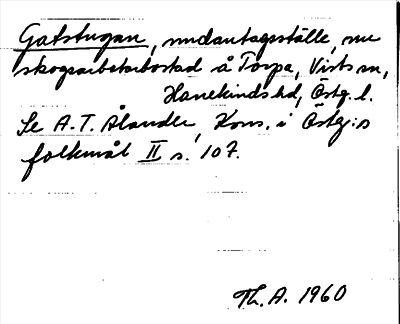 Gatstugan, undantagsställe, nu
skogsarbetarbostad å Torpa, Vists sn,
Hanekinds hd, Östg. l.
Se A. T. Ålander, Kons. i Östg:s
folkmål II s. 107.
Th. A. 1960